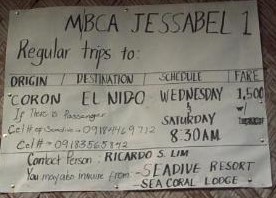 M/BCA JESSABEL 1
Regular trips to:
ORIGIN / DESTINATION / SCHEDULE / FARE
CORON EL NIDO WEDNESDAY 1,500
& w/
If There is Passenger SATURDAY
Cel# 8:30AM
Cel# 09183565342
Contact Person: RICARDO S. LIM
You may also inquire from - SEADIVE RESORT
- SEA CORAL LODGE